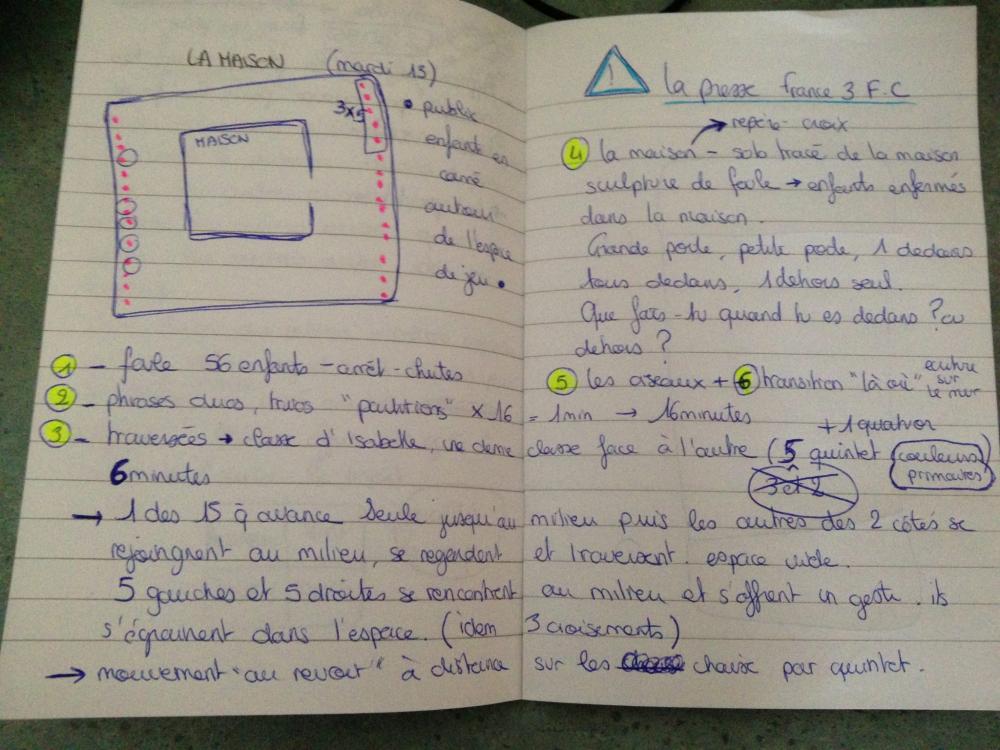 LA MAISON (mardi 13)
MAISON
3x5
• public
enfants en
carré
autour
de l'espace
de jeu •
! la presse france 3 F.C
→ repère croix
4 la maison - sol tracé de la maison
sculpture de foule → enfants enfermés
dans la maison.
Grande porte, petite porte, 1 dedans
tous dedans, 1 dehors seul.
Que fais-tu quand tu es dedans ? ou
dehors ?
5 les oiseaux + 6 transition "là où" écriture sur le mur
1 - foule 56 enfants - arrêt - chutes
2 - phrases duos, trios "partitions" x 16 = 1 min → 16 minutes
+ 1 quatuor
3 - traversées → classe d'Isabelle, une demie classe face à l'autre (5 quintet couleurs primaires)
3 et 2
6 minutes
→ 1 des 15 q avance seule jusqu'au milieu puis les autres des 2 côtés se
rejoingnent au milieu, se regardent et traversent. espace vide.
5 gauches et 5 droites se rencontrent au milieu et s'offrent un geste. ils
s'égrainent dans l'espace. (idem 3 croisements)
→ mouvement "au revoir" à distance sur les chaise par quintet.